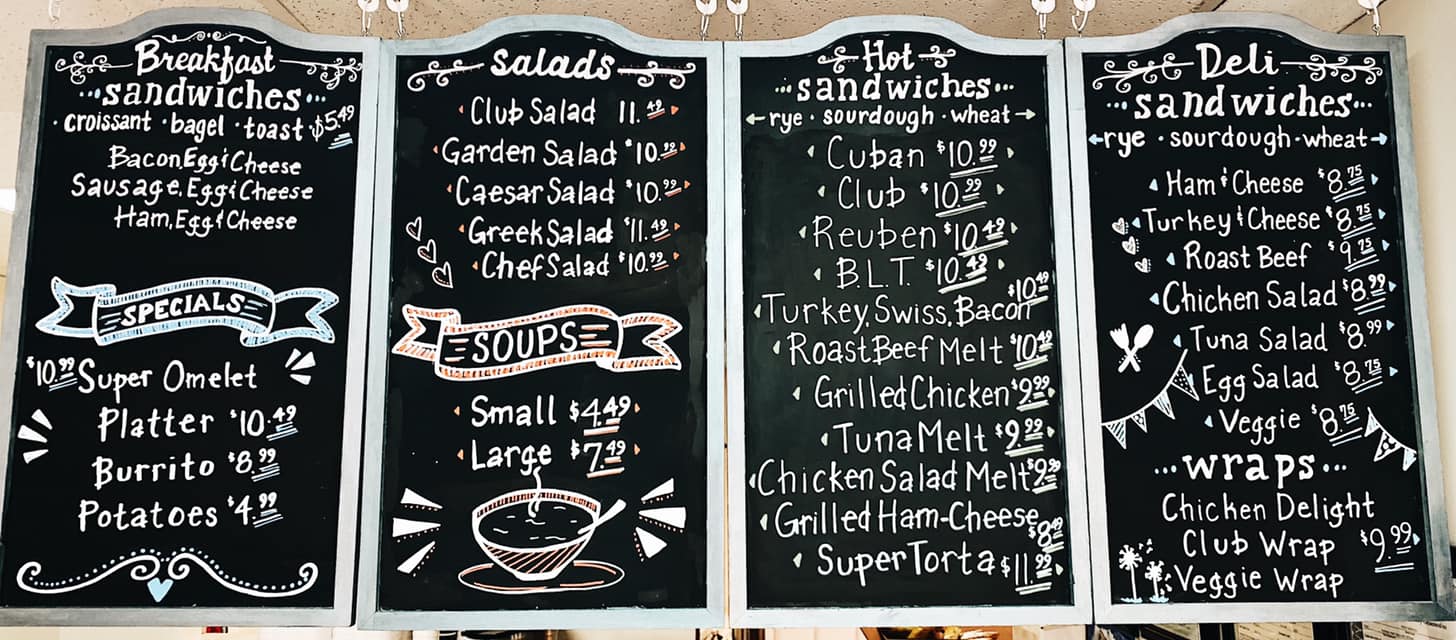 Breakfast
sandwiches
· croissant · bagel · toast · $5.49
Bacon, Egg & Cheese
Sausage, Egg & Cheese
Ham, Egg & Cheese
SPECIALS
$10.99 Super Omelet
Platter $10.49
Burrito $8.99
Potatoes $4.99
Salads
Club Salad 11.49
Garden Salad $10.99
Caesar Salad $10.99
Greek Salad $11.49
Chef Salad $10.99
SOUPS
Small $4.49
Large $7.49
Hot
sandwiches
rye · sourdough · wheat
Cuban $10.99
Club $10.99
Reuben $10.49
B.L.T. $10.49
Turkey, Swiss, Bacon $10.49
Roast Beef Melt $10.49
Grilled Chicken $9.99
Tuna Melt $9.99
Chicken Salad Melt $9.99
Grilled Ham-Cheese $8.49
Super Torta $11.99
Deli
sandwiches
rye · sourdough · wheat
Ham & Cheese $8.75
Turkey & Cheese $8.75
Roast Beef $9.75
Chicken Salad $8.99
Tuna Salad $8.99
Egg Salad $8.75
Veggie $8.75
wraps
Chicken Delight
Club Wrap $9.99
Veggie Wrap